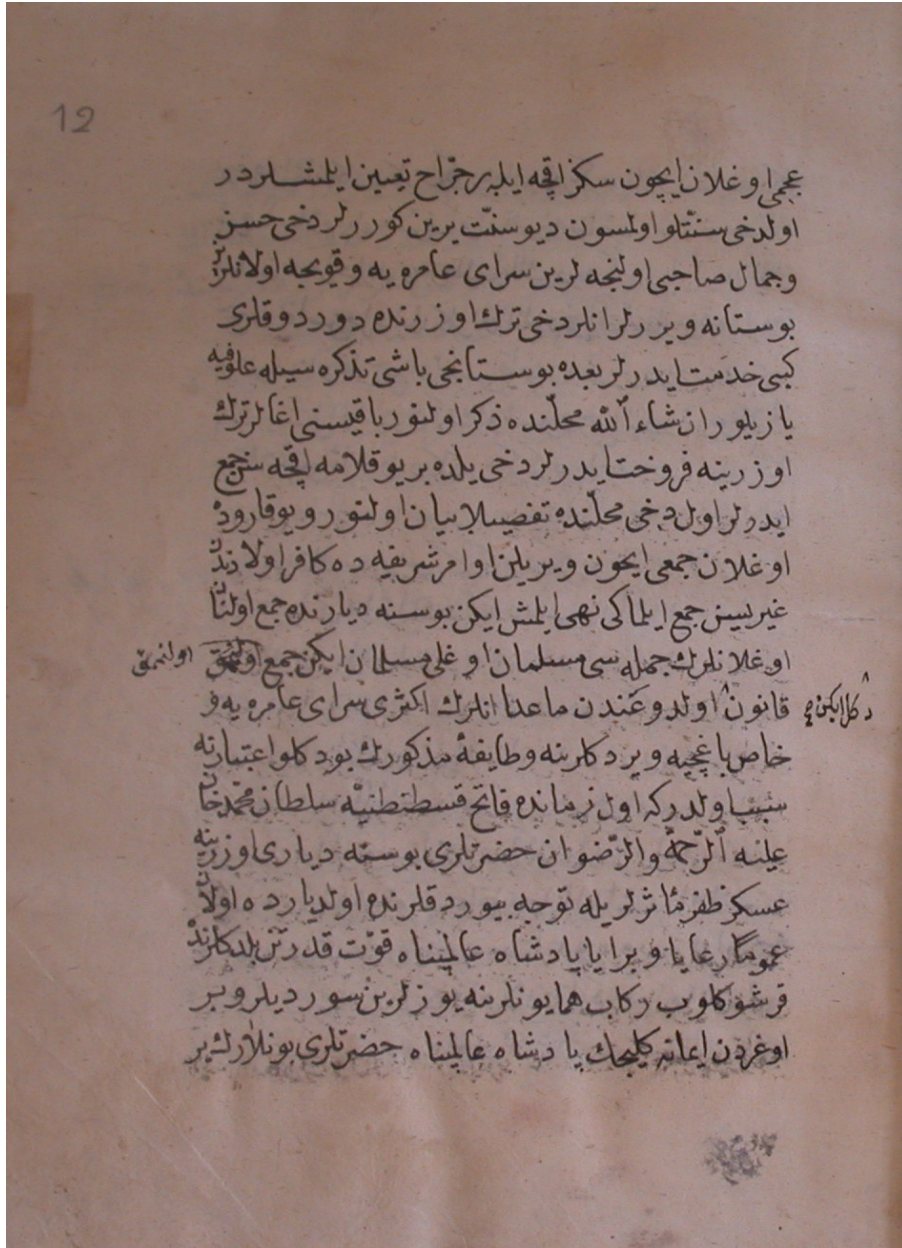 12
عجمى اوغلان ايچون سكز اقچه ايله بر جرّاح تعيين ايلمشلردر
اول دخى سنّتلو اولسون ديو سنّت يرين كوررلر دخى حسن
و جمال صاحبى اولنجه لرين سراى عامره يه و قويجه اولانلرن
بوستانه ويررلر انلر دخى ترك اوزرنده دوردوقلرى
كبى خدمت ايدرلر بعده بوستانجى باشى تذكره سيله علوفيه
يازيلور ان شاء الله محلّنده ذكر اولنور باقيسنى اغالر ترك
اوزرينه فروخت ايدرلر دخى يلده بر يوقلامه اقچه سن جمع
ايدرلر اول دخى محلّنده تفصيلا بيان اولنور و يوقاروده
اوغلان جمعى ايچون ويريلن اوامر شريفه ده كافر اولادندن
غيريسين جمع ايلماكى نهى ايلمش ايكن بوسنه ديارنده جمع اولنان
اوغلانلرك جمله سى مسلمان اوغلى مسلمان ايكن جمع اولنمق
اولنمق
قانون اولدوغندن ماعدا انلرك اكثرى سراى عامره يه و
دكل ايكن
خاص باغچيه ويردكلرينه و طايفهٔ مذكورك بو دكلو اعتبارنه
سبب اولدر كه اول زمانده فاتح قسطنطنيّه سلطان محمّد خان
عليه الرّحمة والرّضوان حضرتلرى بوسنه ديارى اوزرينه
عسكر ظفر مأثرلريله توجه بيوردقلرنده اول ديارده اولان
عموماً رعايا و برايا پادشاه عالمپناه قوّت قدرتن بلدكلرنده
قرشو كلوب ركاب همايونلرينه يوزلرين سورديلر و بر
اوغردن ايمانه كليجك پادشاه عالمپناه حضرتلرى بونلارك بر